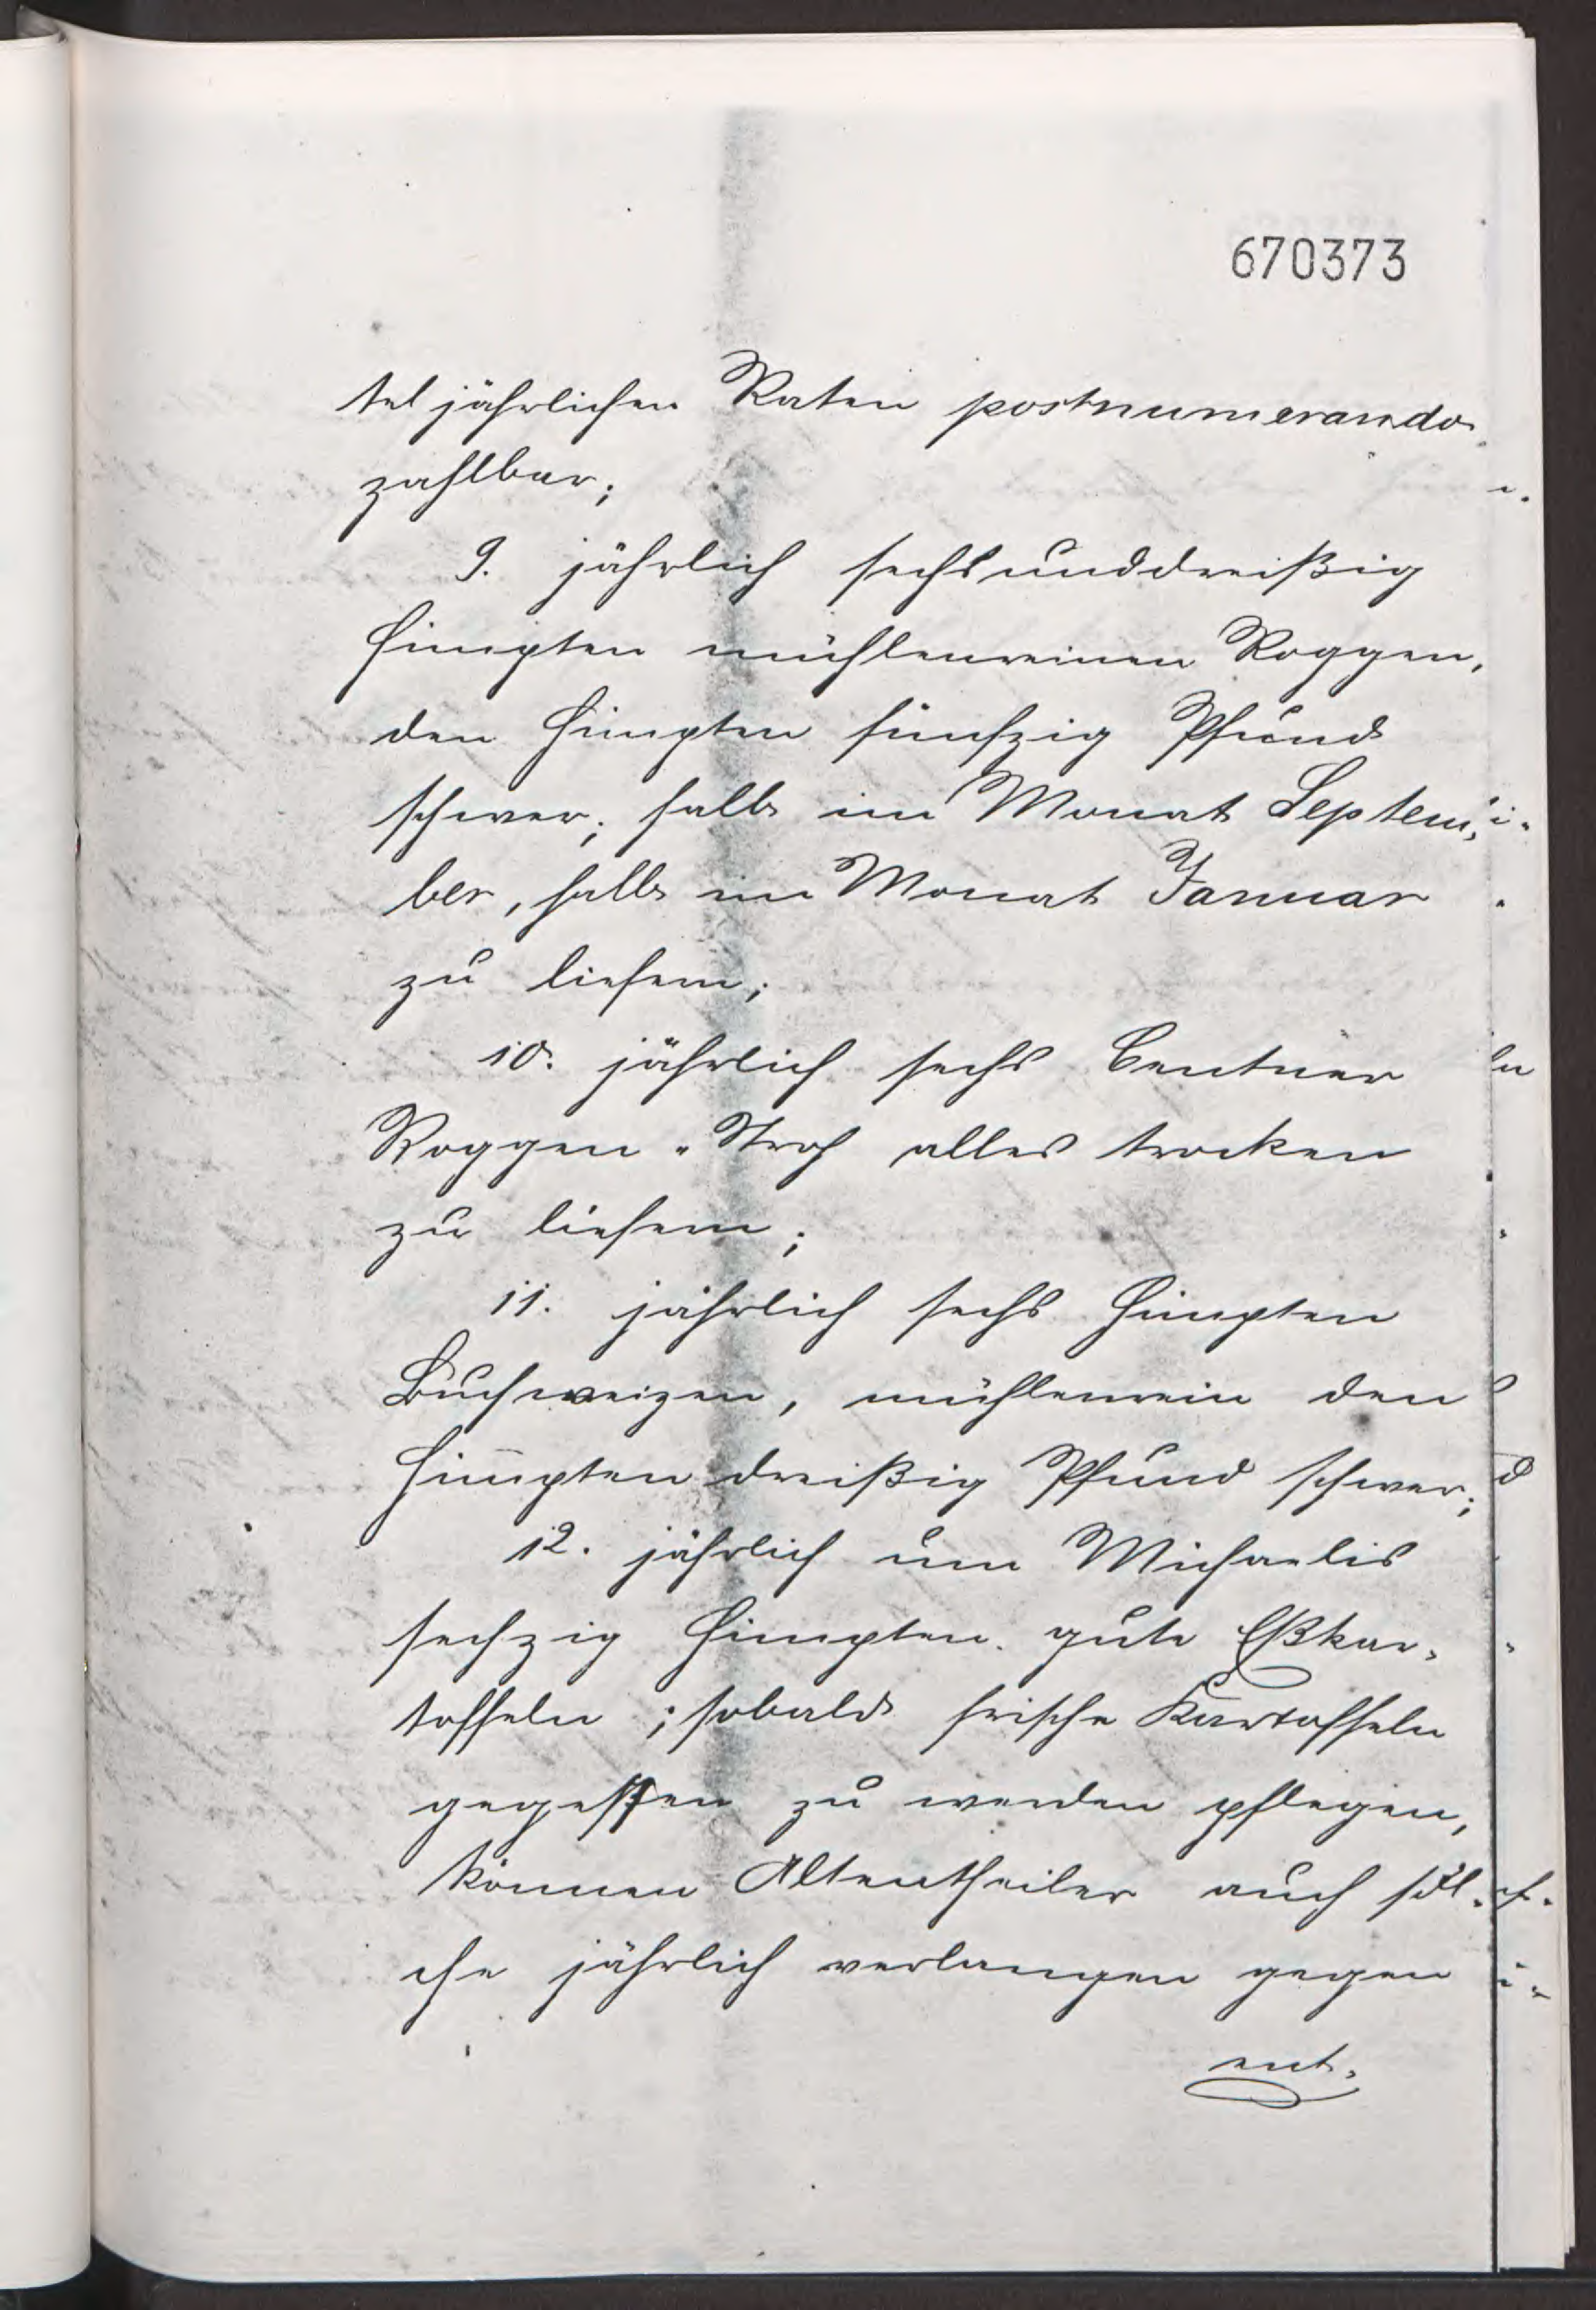 670373
tel jährlichen Raten postnumerando
zahlbar;
9. jährlich sechsunddreißig
Himpten mühlenreinen Roggen,
den Himpten fünfzig Pfund
schwer; halb im Monat Septem-
ber, halb im Monat Januar
zu liefern;
10. jährlich sechs Centner
Roggen-Stroh alles trocken
zu liefern;
11. jährlich sechs Himpten
Buchweizen, mühlenrein den
Himpten dreißig Pfund schwer;
12. jährlich um Michaelis
sechzig Himpten gute Eßkar-
toffeln; sobald frische Kartoffeln
gegessen zu werden pflegen,
können Altentheiler auch sol-
che jährlich verlangen gegen
ent-